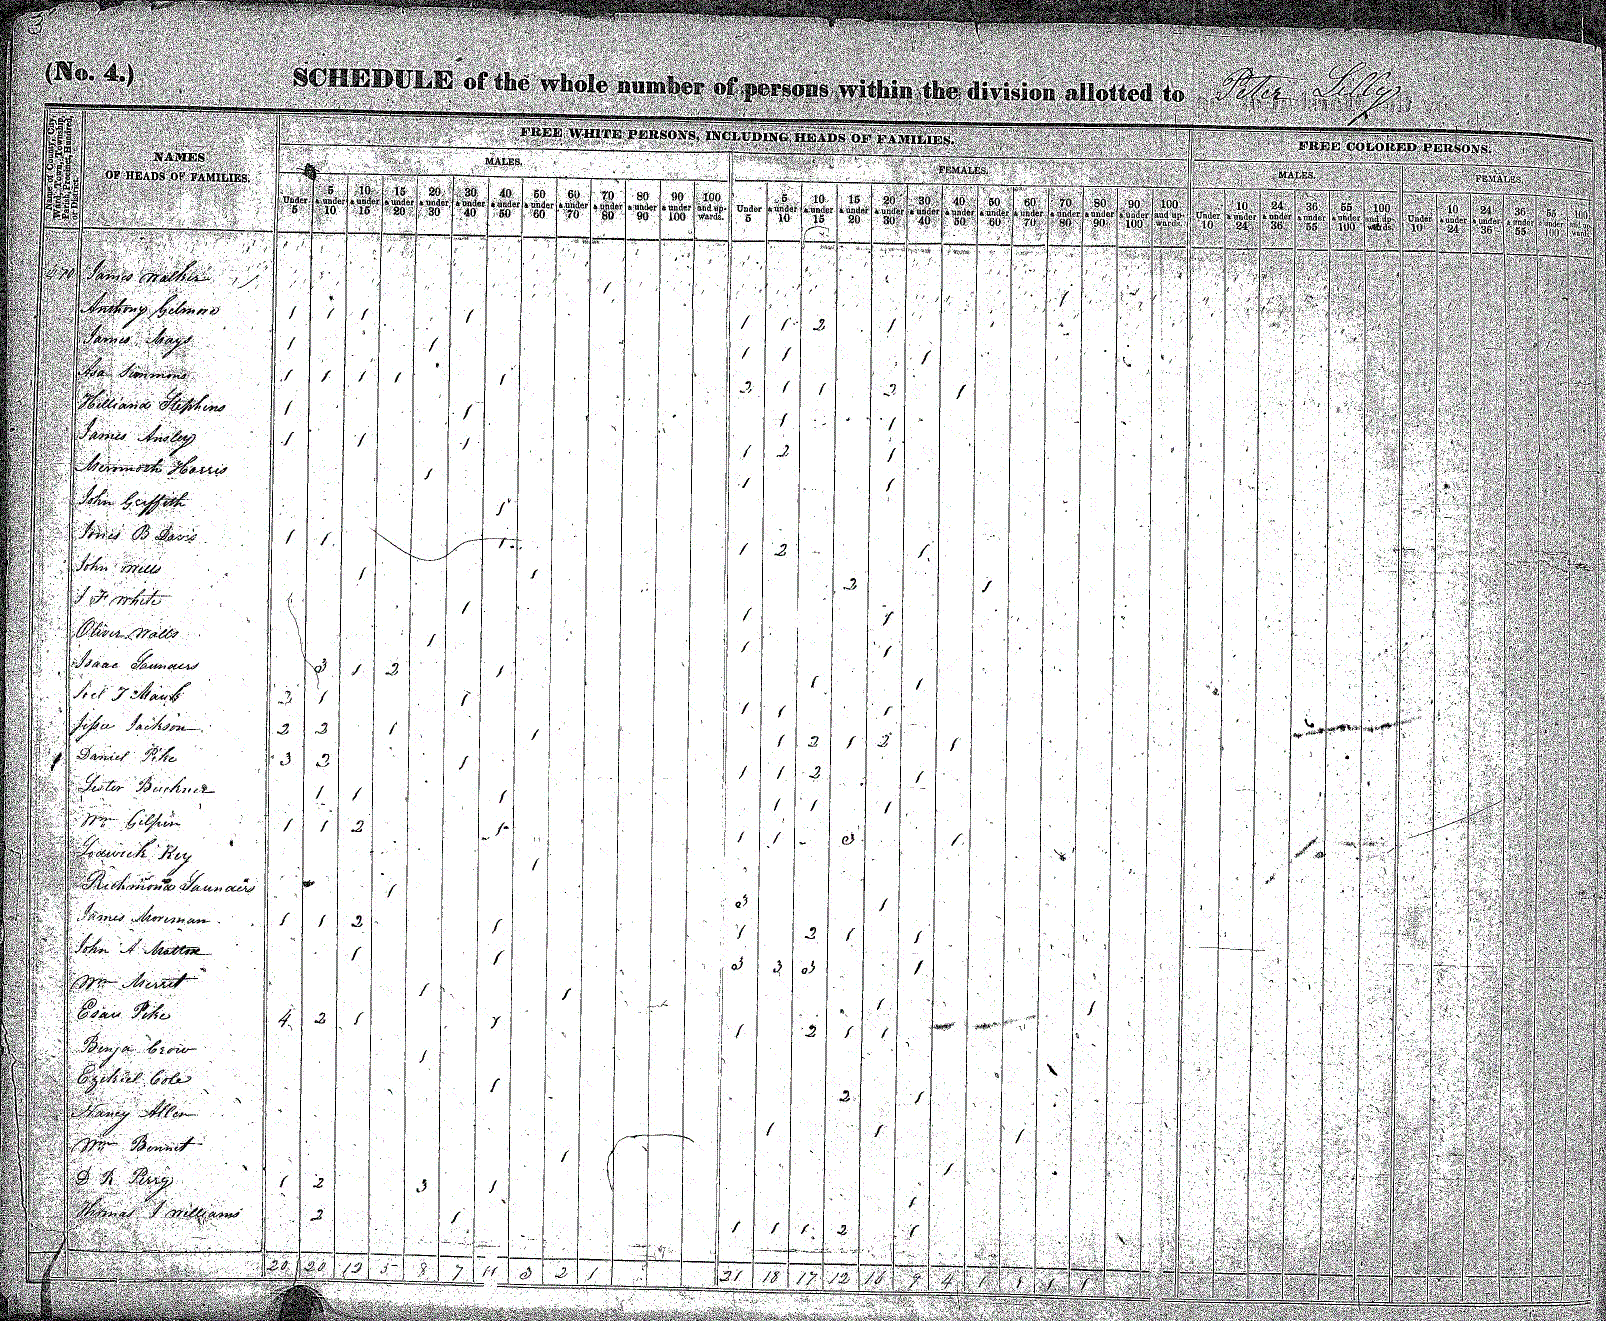 (No. 4.)
SCHEDULE of the whole number of persons within the division allotted to Peter Lilly
Name of County, City, Ward, Town, Township, Parish, Precinct, Hundred, or District.
NAMES OF HEADS OF FAMILIES.
FREE WHITE PERSONS, INCLUDING HEADS OF FAMILIES.
FREE COLORED PERSONS.
MALES. FEMALES. MALES. FEMALES.
Under 5 5 & under 10 10 & under 15 15 & under 20 20 & under 30 30 & under 40 40 & under 50 50 & under 60 60 & under 70 70 & under 80 80 & under 90 90 & under 100 100 and upwards.
Under 5 5 & under 10 10 & under 15 15 & under 20 20 & under 30 30 & under 40 40 & under 50 50 & under 60 60 & under 70 70 & under 80 80 & under 90 90 & under 100 100 and upwards.
Under 10 10 & under 24 24 & under 36 36 & under 55 55 & under 100 100 and upwards.
Under 10 10 & under 24 24 & under 36 36 & under 55 55 & under 100 100 and upwards.
James 1 1
Anthony Gilmore 1 1 1 1 1 1 2 1
James Mays 1 1 1 1 1
Asa Simmons 1 1 1 1 1 2 1 1 2 1
Stephens 1 1 1 1
James Ansley 1 1 1 1 2 1
Harris 1 1 1
John Griffith 1
B Davis 1 1 1 1 2 1
John Wells 1 1 2 1
White 1 1 1
Oliver Watts 1 1 1
Isaac Saunders 3 1 2 1 1 1
2 1 1 1 1 1
Jesse Jackson 2 2 1 1 1 2 1 2 1
Daniel Pike 3 2 1 1 1 2 1
Lester Buckner 1 1 1 1 1 1
Wm Gilpin 1 1 2 1 1 1 3 1
Key 1
Richmond Saunders 1 3 1
James Moreman 1 1 2 1 1 2 1 1
John A 1 1 3 3 3 1
Wm Merret 1 1 1 1
Esau Pike 4 2 1 1 1 2 1 1
Benja Crow 1
Ezekiel Cole 1 2 1
Nancy Allen 1 1 1
Wm Bennet 1 1
D R Perry 1 2 3 1 1
Thomas J Williams 2 1 1 1 1 2 1
20 20 12 5 8 7 11 3 2 1 21 18 17 12 16 9 4 1 1 1 1